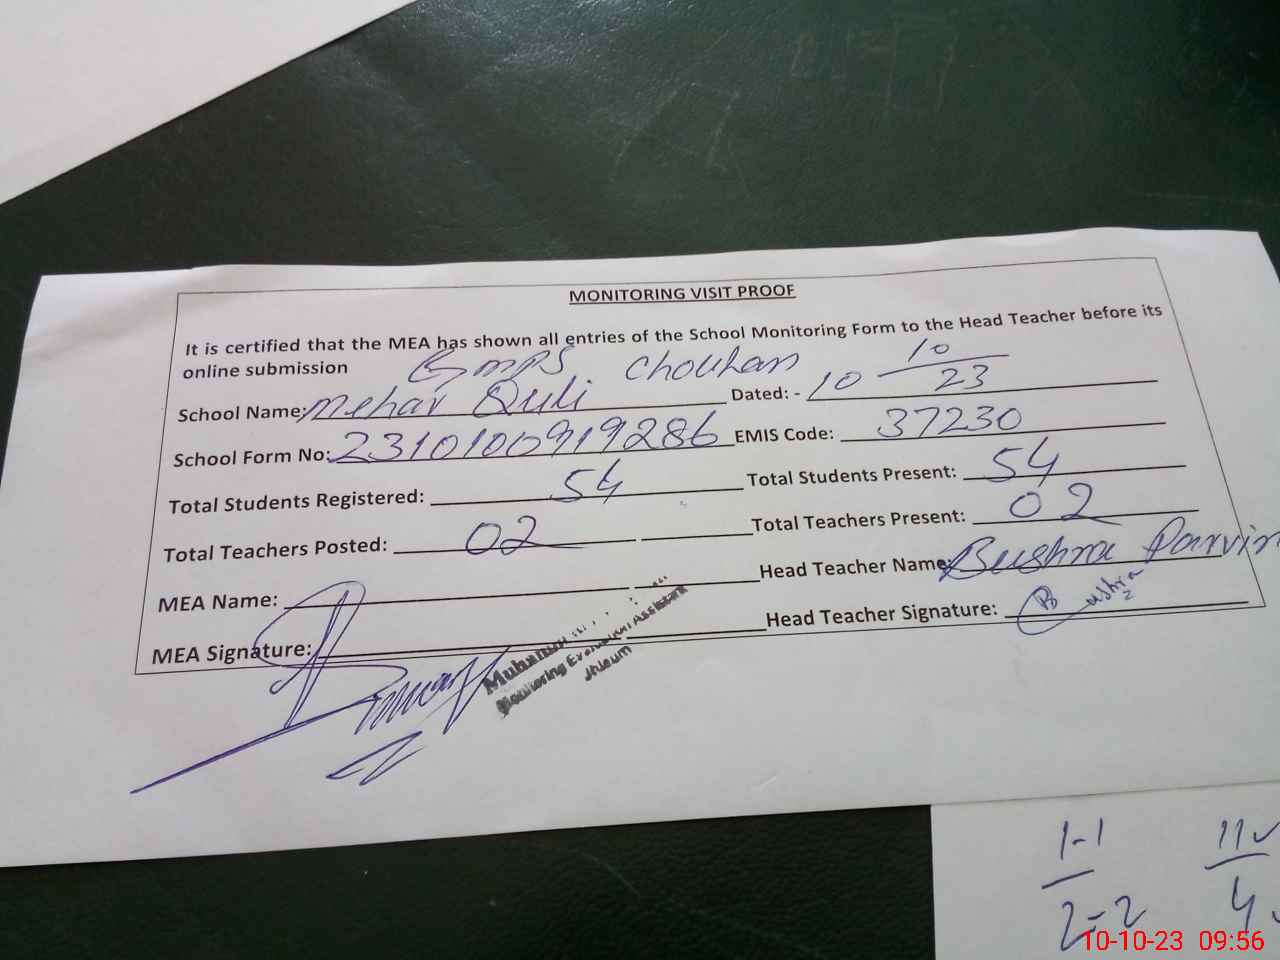 MONITORING VISIT PROOF
It is certified that the MEA has shown all entries of the School Monitoring Form to the Head Teacher before its
online submission
GMPS Chouhan
School Name: Mehar Quli Dated: - 10 10/23
School Form No: 2310100919286 EMIS Code: 37230
Total Students Registered: 54 Total Students Present: 54
Total Teachers Posted: 02 Total Teachers Present: 02
MEA Name: Head Teacher Name: Bushra Parvin
MEA Signature: Head Teacher Signature: Bushra
Monitoring Evaluation Assistant
Jhleum
1-1 11
2=2 4
10-10-23 09:56